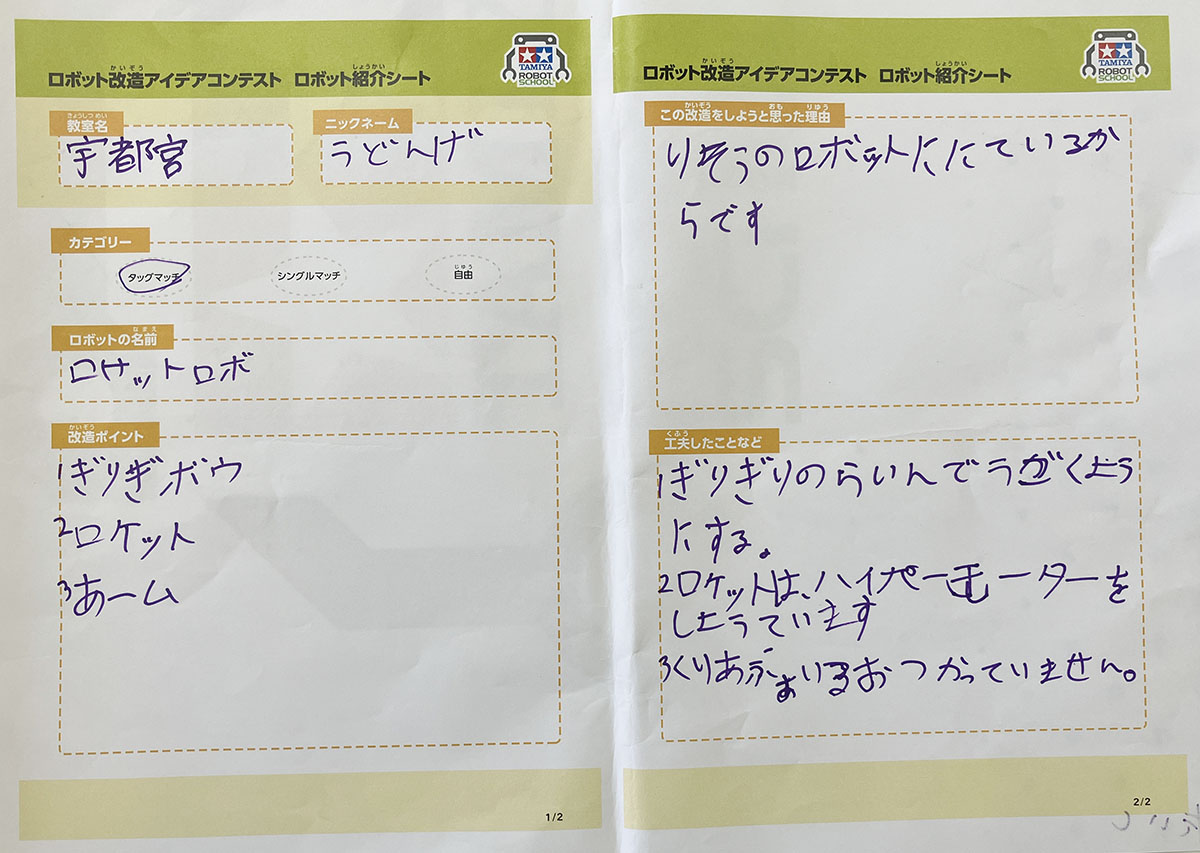 ロボット改造アイデアコンテスト ロボット紹介シート
TAMIYA
ROBOT
SCHOOL
教室名
宇都宮
ニックネーム
うどんげ
カテゴリー
タッグマッチ
シングルマッチ
自由
ロボットの名前
ロケットロボ
改造ポイント
1ぎりぎボウ
2ロケット
3あーム
1/2
ロボット改造アイデアコンテスト ロボット紹介シート
TAMIYA
ROBOT
SCHOOL
この改造をしようと思った理由
りそうのロボットににているか
らです
工夫したことなど
1ぎりぎりのらいんでうごくよう
にする。
2ロケットは、ハイパーモーターを
しようています
3くりあふぁいるおつかっていません。
2/2